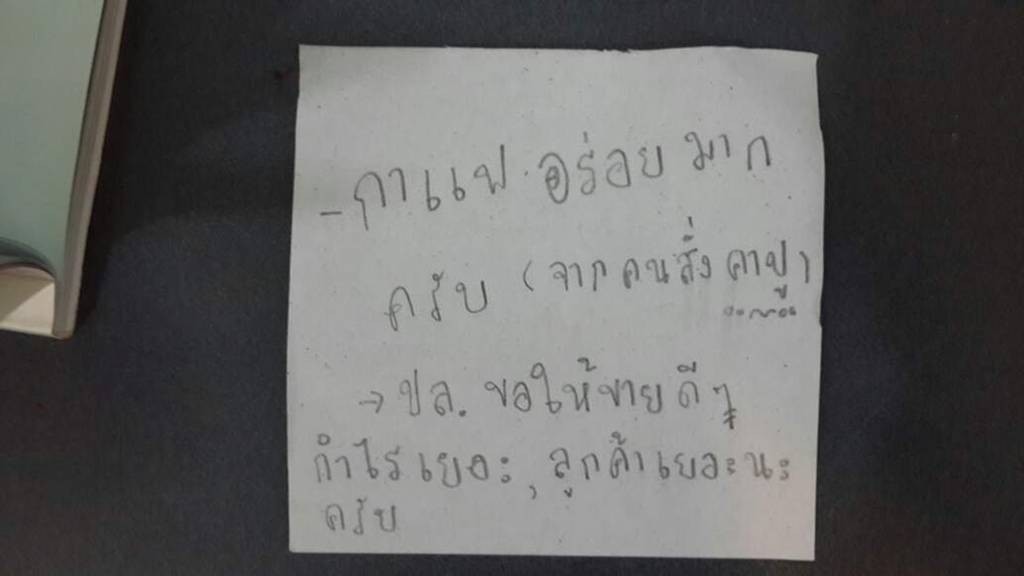 - กาแฟอร่อยมาก
ครับ (จากคนสั่งคาปู)
→ ปล. ขอให้ขายดีๆ
กำไรเยอะ, ลูกค้าเยอะนะ
ครับ